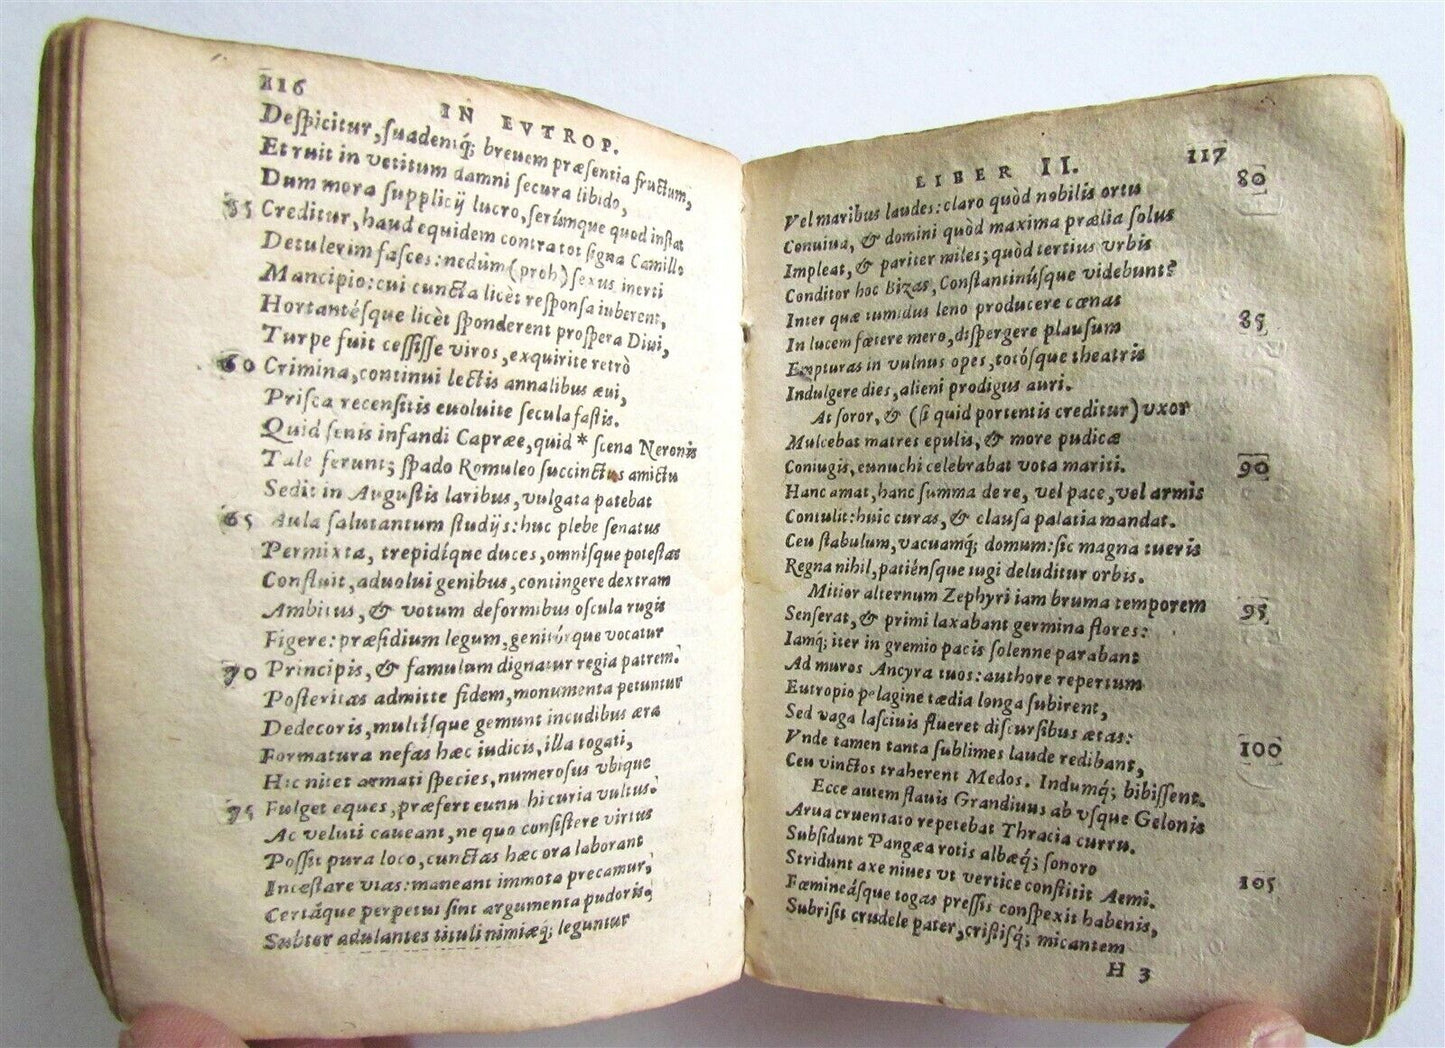 116
IN EVTROP.
Despicitur, suadentq́; breuem præsentia fructum,
Et ruit in vetitum damni secura libido,
Dum mora supplicij lucro, serúmque quod instat
55 Creditur, haud equidem contra tot signa Camillo
Detulerim fasces: nedùm (proh) sexus inerti
Mancipio: cui cuncta licèt responsa iuberent,
Hortantésque licèt sponderent prospera Diui,
Turpe fuit cessisse viros, exquirite retrò
60 Crimina, continui lectis annalibus æui,
Prisca recensitis euoluite secula fastis.
Quid senis infandi Capreæ, quid * scena Neronis
Tale ferunt; spado Romuleo succinctus amictu
Sedit in Augustis laribus, vulgata patebat
65 Aula salutantum studijs: huc plebe senatus
Permixta, trepidíque duces, omnísque potestas
Confluit, aduolui genibus, contingere dextram
Ambitus, & votum deformibus oscula rugis
Figere: præsidium legum, genitórque vocatur
70 Principis, & famulum dignatur regia patrem.
Posteritas admitte fidem, monumenta petuntur
Dedecoris, multísque gemunt incudibus æra
Formatura nefas hæc iudicis, illa togati,
Hic nitet armati species, numerosus vbique
75 Fulget eques, præfert eunuchi curia vultus.
Ac veluti caueant, ne quo consistere virtus
Possit pura loco, cunctas hæc ora laborant
Incæstare vias: maneant immota precamur,
Certáque perpetui sint argumenta pudoris.
Subter adulantes tituli nimiæq́; leguntur
LIBER II.
117
Vel maribus laudes: claro quòd nobilis ortu 80
Conuiua, & domini quòd maxima prælia solus
Impleat, & pariter miles; quòd tertius vrbis
Conditor hoc Bizas, Constantinúsque videbunt?
Inter quæ tumidus leno producere cœnas
In lucem fœtere mero, dispergere plausum 85
Empturas in vulnus opes, totósque theatris
Indulgere dies, alieni prodigus auri.
At soror, & (si quid portentis creditur) vxor
Mulcebat matres epulis, & more pudicæ
Coniugis, eunuchi celebrabat vota mariti. 90
Hanc amat, hanc summa de re, vel pace, vel armis
Consulit: huic curas, & clausa palatia mandat.
Ceu stabulum, vacuamq́; domum: sic magna tueris
Regna nihil, patiénsque iugi deluditur orbis.
Mitior alternum Zephyri iam bruma temporem 95
Senserat, & primi laxabant germina flores:
Iamq́; iter in gremio pacis solenne parabant
Ad muros Ancyra tuos: authore repertum
Eutropio pelagine tædia longa subirent,
Sed vaga lasciuis flueret discursibus ætas: 100
Vnde tamen tanta sublimes laude redibant,
Ceu vinctos traherent Medos. Indumq́; bibissent.
Ecce autem flauis Gradiuus ab vsque Gelonis
Arua cruentato repetebat Thracia curru.
Subsidunt Pangæa rotis albæq́; sonoro 105
Stridunt axe niues vt vertice constitit Aemi.
Fœmineásque togas pressis conspexit habenis,
Subrisit crudele pater, cristisq́; micantem
H 3